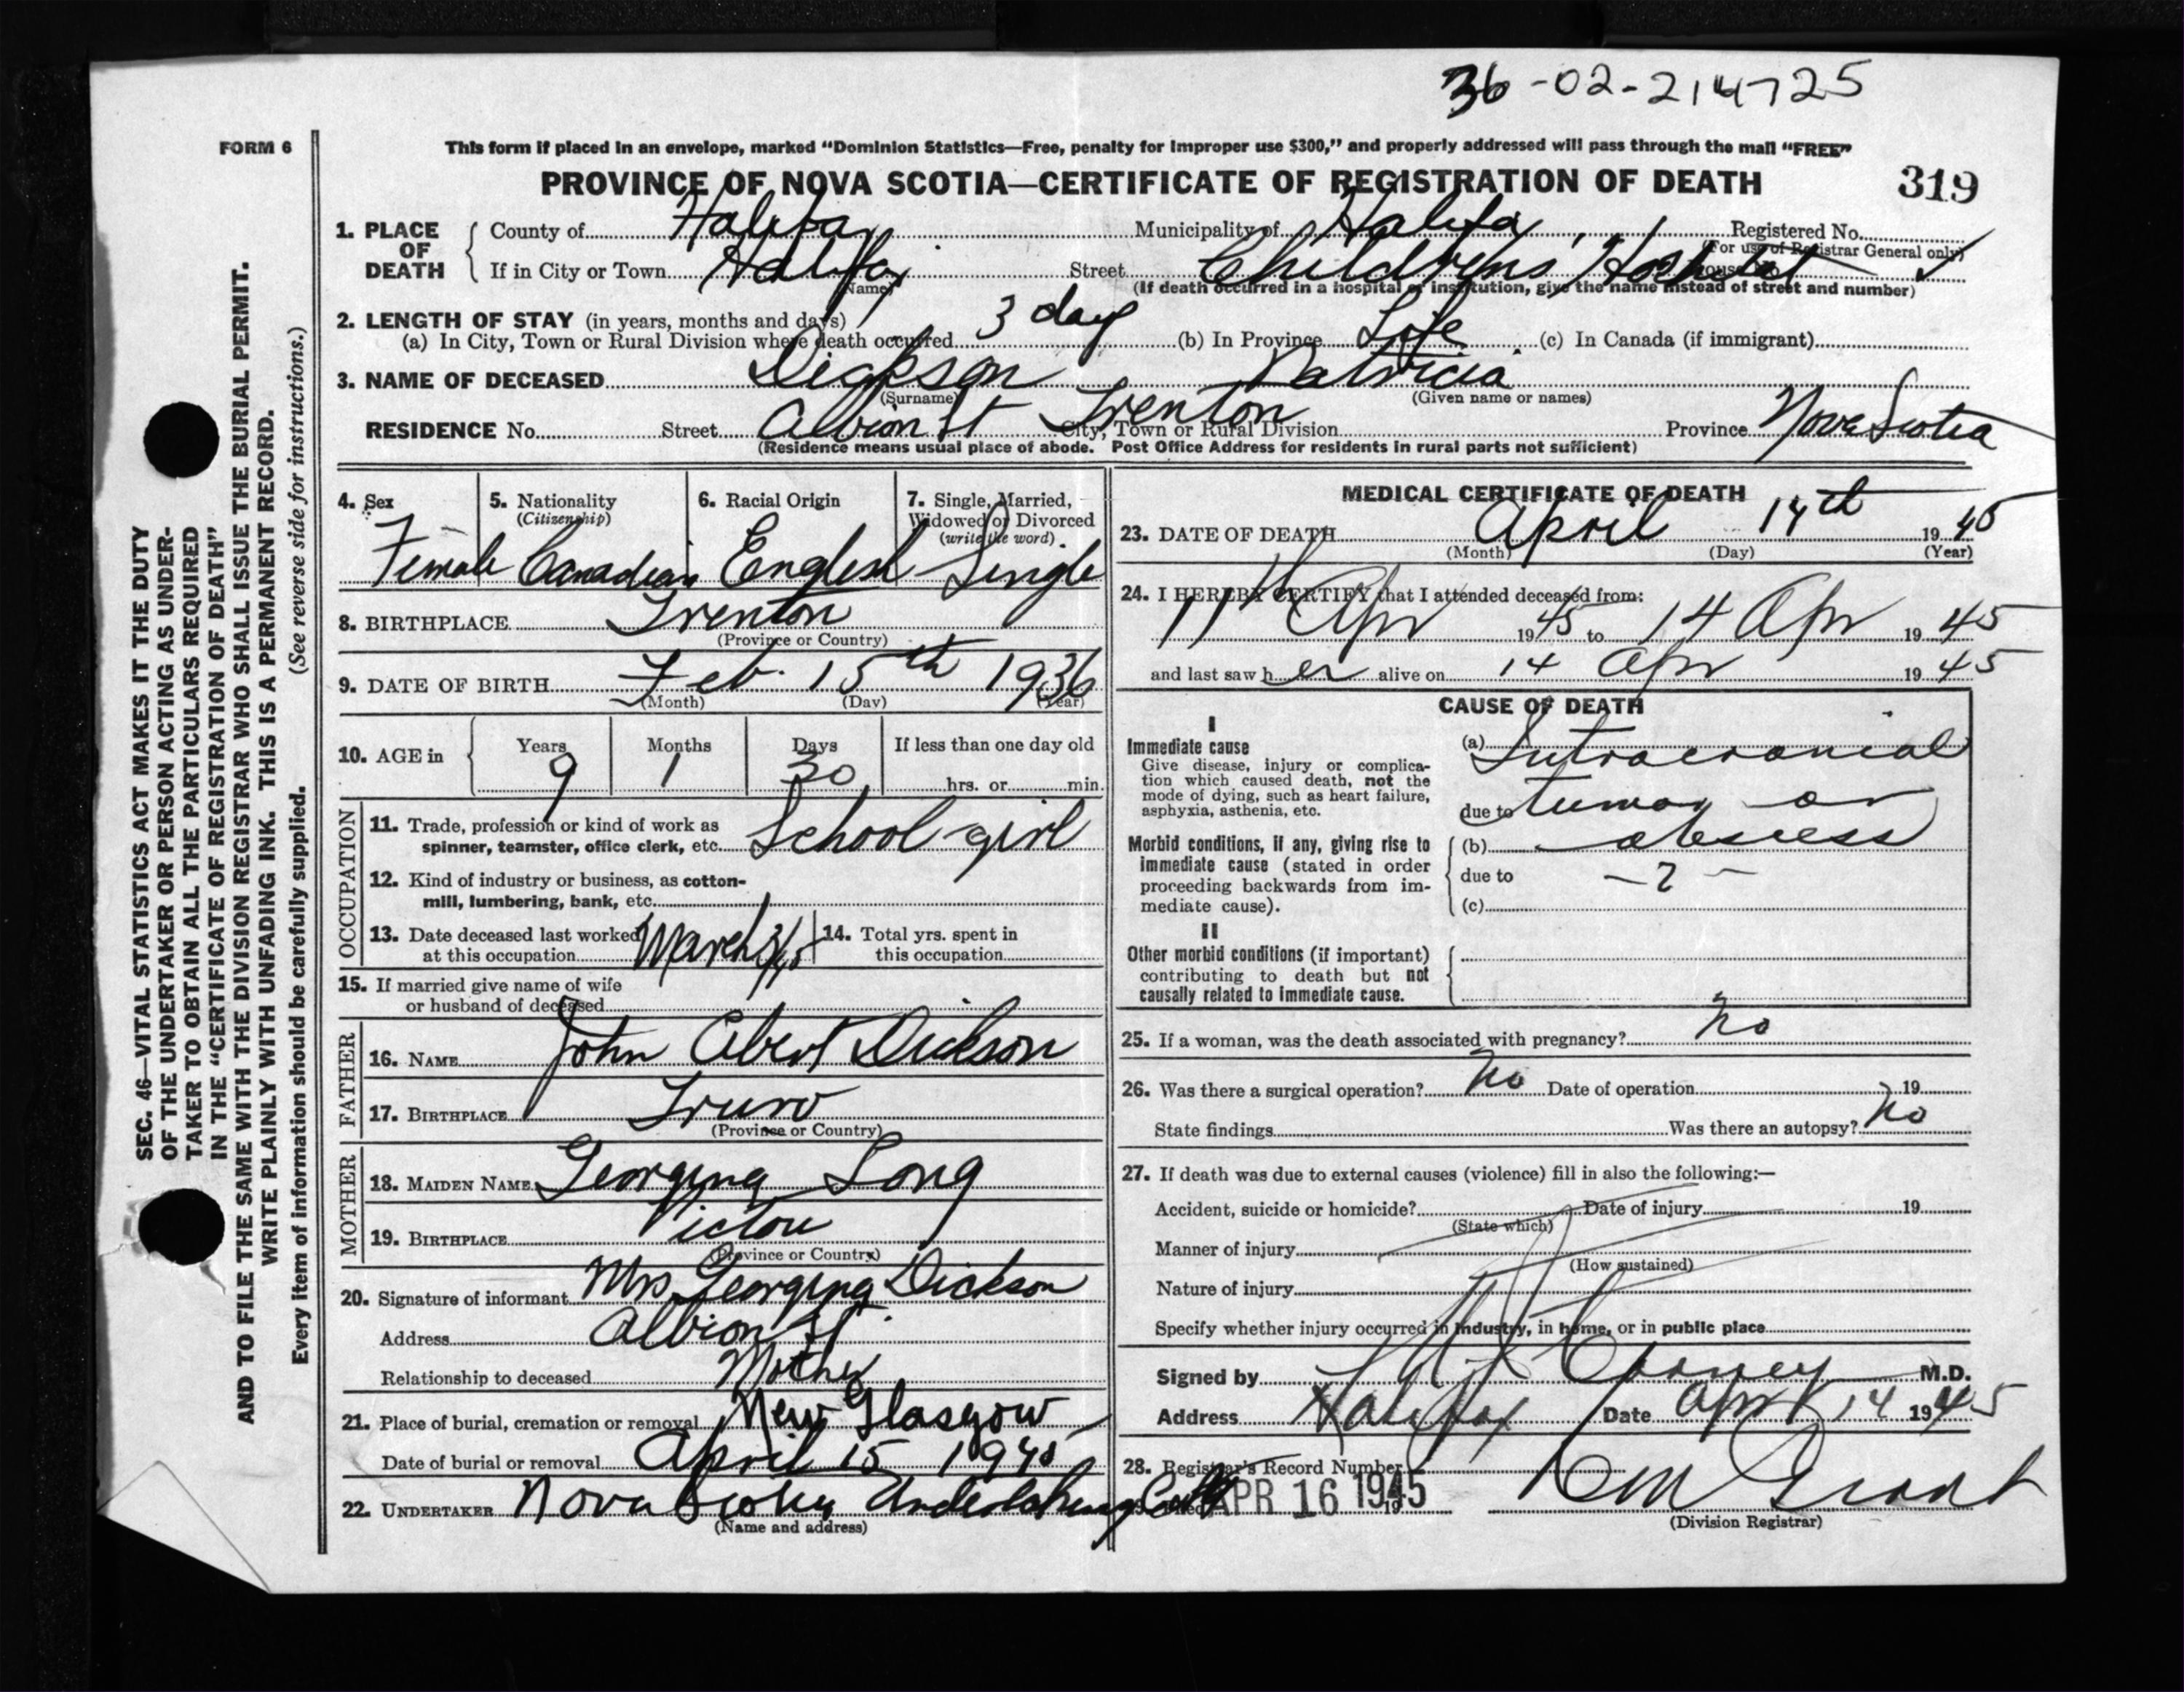 36-02-214725
FORM 6
This form if placed in an envelope, marked “Dominion Statistics—Free, penalty for improper use $300,” and properly addressed will pass through the mail “FREE”
PROVINCE OF NOVA SCOTIA—CERTIFICATE OF REGISTRATION OF DEATH
319
1. PLACE OF DEATH
County of Halifax Municipality of Halifax Registered No.
(For use of Registrar General only)
If in City or Town Halifax Street Childrens' Hospital
(Name)
(If death occurred in a hospital or institution, give the name instead of street and number)
2. LENGTH OF STAY (in years, months and days)
(a) In City, Town or Rural Division where death occurred 3 day (b) In Province Life (c) In Canada (if immigrant)
3. NAME OF DECEASED Dickson Patricia
(Surname) (Given name or names)
RESIDENCE No. Street Albion St City, Town or Rural Division Trenton Province Nova Scotia
(Residence means usual place of abode. Post Office Address for residents in rural parts not sufficient)
4. Sex
Female
5. Nationality
(Citizenship)
Canadian
6. Racial Origin
English
7. Single, Married,
Widowed or Divorced
(write the word)
Single
8. BIRTHPLACE Trenton
(Province or Country)
9. DATE OF BIRTH Feb. 15th 1936
(Month) (Day) (Year)
10. AGE in
Years Months Days If less than one day old
9 1 30 hrs. or min.
OCCUPATION
11. Trade, profession or kind of work as
spinner, teamster, office clerk, etc. School-girl
12. Kind of industry or business, as cotton-
mill, lumbering, bank, etc.
13. Date deceased last worked
at this occupation March
14. Total yrs. spent in
this occupation
15. If married give name of wife
or husband of deceased
FATHER
16. NAME John Albert Dickson
17. BIRTHPLACE Truro
(Province or Country)
MOTHER
18. MAIDEN NAME Georgina Long
19. BIRTHPLACE Pictou
(Province or Country)
20. Signature of informant Mrs Georgina Dickson
Address Albion St
Relationship to deceased Mother
21. Place of burial, cremation or removal New Glasgow
Date of burial or removal April 15 1945
22. UNDERTAKER Nova Scotia Undertaking
(Name and address)
MEDICAL CERTIFICATE OF DEATH
23. DATE OF DEATH April 14th 1945
(Month) (Day) (Year)
24. I HEREBY CERTIFY that I attended deceased from:
11 Apr 1945 to 14 Apr 1945
and last saw her alive on 14 Apr 1945
CAUSE OF DEATH
I
Immediate cause
Give disease, injury or complica-
tion which caused death, not the
mode of dying, such as heart failure,
asphyxia, asthenia, etc.
(a) Intracranial
due to tumor or
Morbid conditions, if any, giving rise to
immediate cause (stated in order
proceeding backwards from im-
mediate cause).
(b) abscess
due to — ? —
(c)
II
Other morbid conditions (if important)
contributing to death but not
causally related to immediate cause.
25. If a woman, was the death associated with pregnancy? no
26. Was there a surgical operation? No Date of operation 19
State findings Was there an autopsy? No
27. If death was due to external causes (violence) fill in also the following:—
Accident, suicide or homicide? Date of injury 19
(State which)
Manner of injury
(How sustained)
Nature of injury
Specify whether injury occurred in industry, in home, or in public place
Signed by M.D.
Address Halifax Date April 14 1945
28. Registrar's Record Number
APR 16 1945
Grant
(Division Registrar)
SEC. 46—VITAL STATISTICS ACT MAKES IT THE DUTY
OF THE UNDERTAKER OR PERSON ACTING AS UNDER-
TAKER TO OBTAIN ALL THE PARTICULARS REQUIRED
IN THE “CERTIFICATE OF REGISTRATION OF DEATH”
AND TO FILE THE SAME WITH THE DIVISION REGISTRAR WHO SHALL ISSUE THE BURIAL PERMIT.
WRITE PLAINLY WITH UNFADING INK. THIS IS A PERMANENT RECORD.
Every item of information should be carefully supplied. (See reverse side for instructions.)